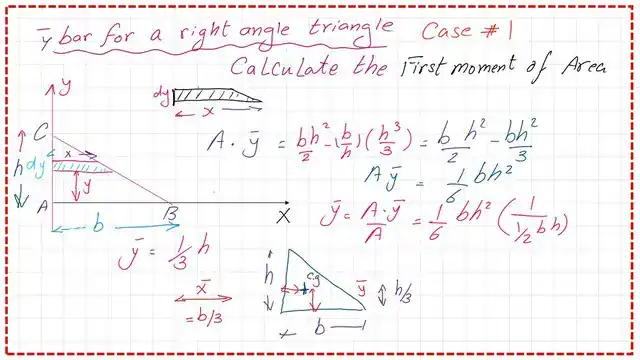 ȳ bar for a right angle triangle Case # 1
Calculate the First moment of Area
dy
x
y
C
h
dy
x
y
A
B
X
b
A·ȳ = bh²/2 - (b/h)(h³/3) = b h²/2 - bh²/3
Aȳ = 1/6 bh²
ȳ = A·ȳ/A = 1/6 bh² (1/(1/2 bh))
ȳ = 1/3 h
x̄
= b/3
h
c.g
ȳ
h/3
b